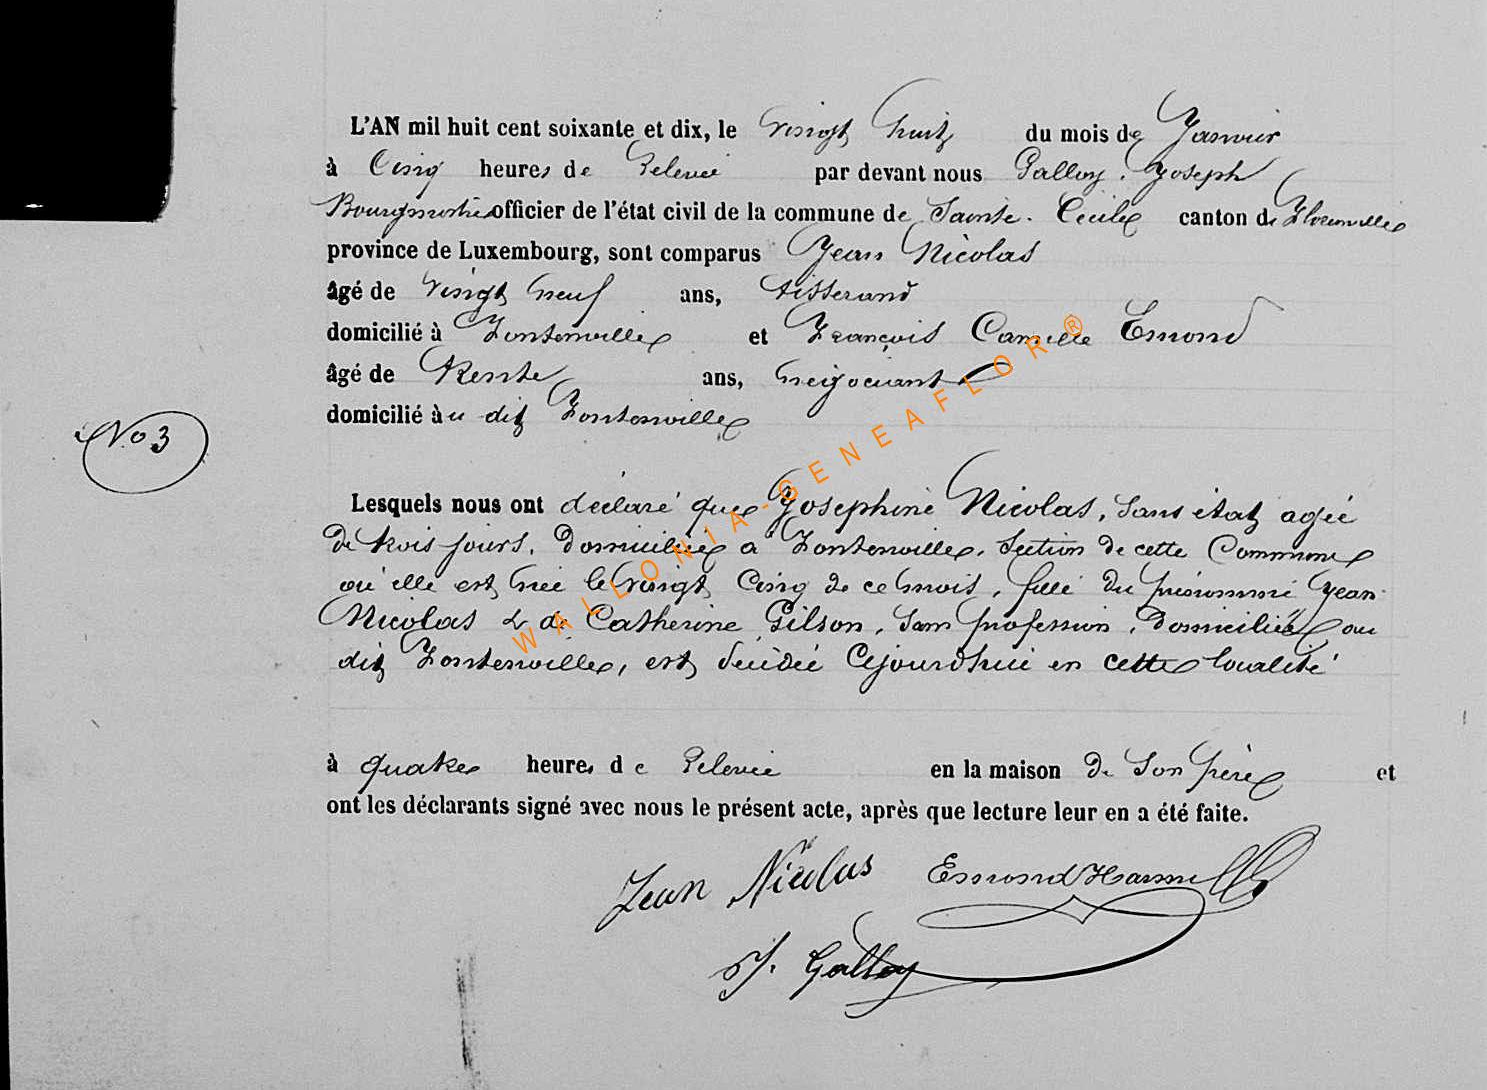 L'AN mil huit cent soixante et dix, le vingt huit du mois de Janvier
à Cinq heures de relevée par devant nous Galloy Joseph
Bourgmestre officier de l'état civil de la commune de Sainte-Cécile canton de Florenville
province de Luxembourg, sont comparus Jean Nicolas
âgé de vingt neuf ans, tisserand
domicilié à Fontenoille et François Camille Emond
âgé de Trente ans, négociant
domicilié au dit Fontenoille
No 3
Lesquels nous ont déclaré que Joséphine Nicolas, sans état, agée
de trois jours, domiciliée à Fontenoille, section de cette Commune
où elle est née le vingt Cinq de ce mois, fille du prénommé Jean
Nicolas & de Catherine Gilson, sans profession, domiciliée au
dit Fontenoille, est décédée Cejourd'hui en cette localité
à quatre heures de relevée en la maison de son père et
ont les déclarants signé avec nous le présent acte, après que lecture leur en a été faite.
Jean Nicolas Emond
J. Galloy
WALLONIA-GENEAFLOR®